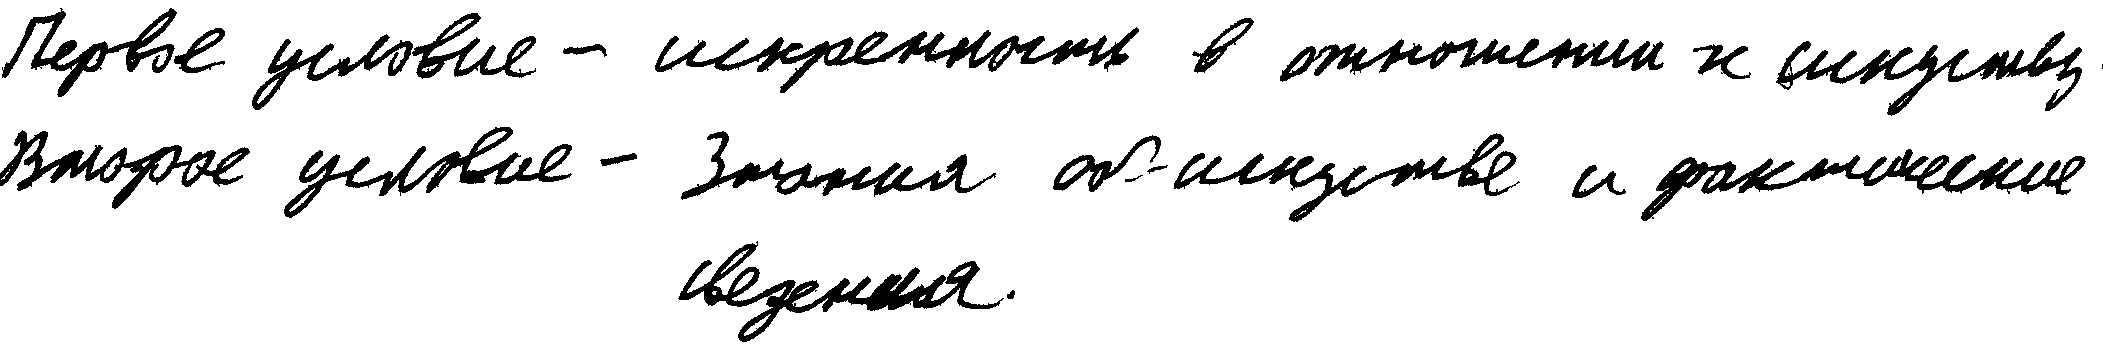 Первое условие – искренность в отношении к искуству.
Второе условие – Знания об искустве и фактические
сведения.